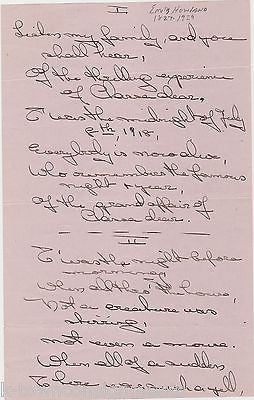 I
Emily Howland
1827-1929
Listen my family, and you
shall hear,
Of the thrilling experience
of Clarra dear.
T'was the midnight of July
8th, 1918,
Everybody is now alive,
Who remembers the famous
night & year,
Of the grand affair of
Clarra dear.
II
T'was the night before
morning,
When all thro' the house,
Not a creature was
stirring,
not even a mouse.
When all of a sudden
There was such a yell,